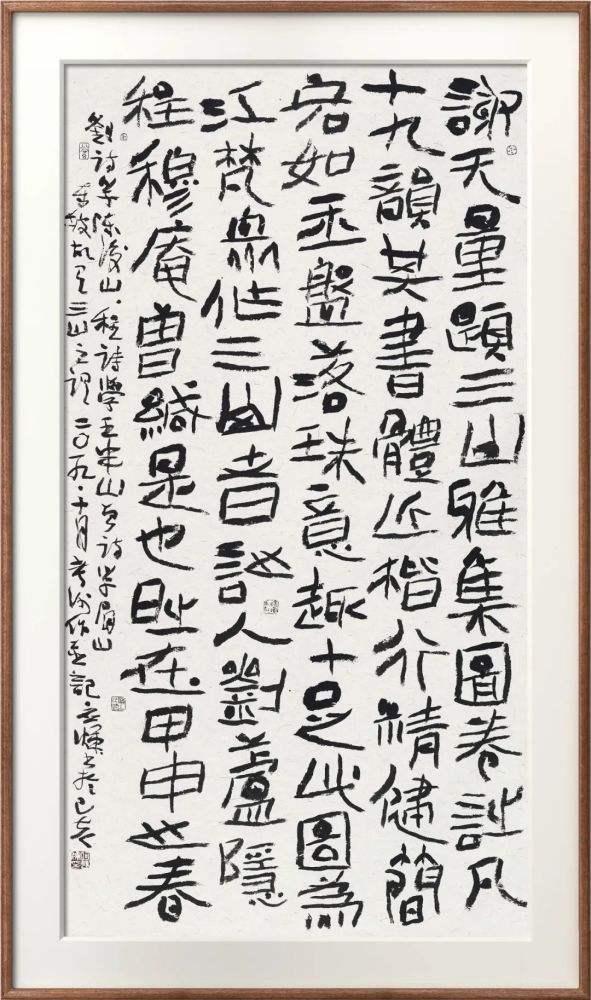 謝天量題三山雅集圖卷詩凡
十九韻其書體近楷行精健簡
宕如玉盤落珠意趣十足此圖為
江梵眾作三山者詩人劉蘆隱
程穆庵曾緘是也時在甲申之春
劉詩學陳後山.程詩學王半山曾詩學眉山
故有三山之謂二〇一九.十月作並記